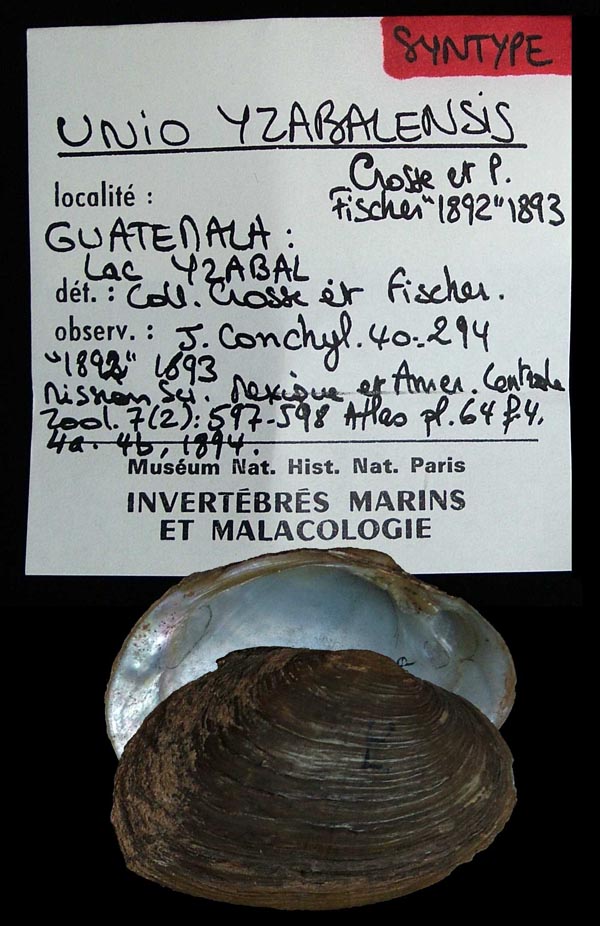 SYNTYPE
UNIO YZABALENSIS
Crosse et P.
Fischer "1892" 1893
localité :
GUATEMALA :
Lac YZABAL
dét. : Coll. Crosse et Fischer.
observ. : J. Conchyl. 40: 294
"1892" 1893
Mission Sci. Mexique et Amer. Centrale
Zool. 7(2): 597-598 Atlas pl. 64 f. 4.
4a. 4b, 1894.
Muséum Nat. Hist. Nat. Paris
INVERTÉBRÉS MARINS
ET MALACOLOGIE